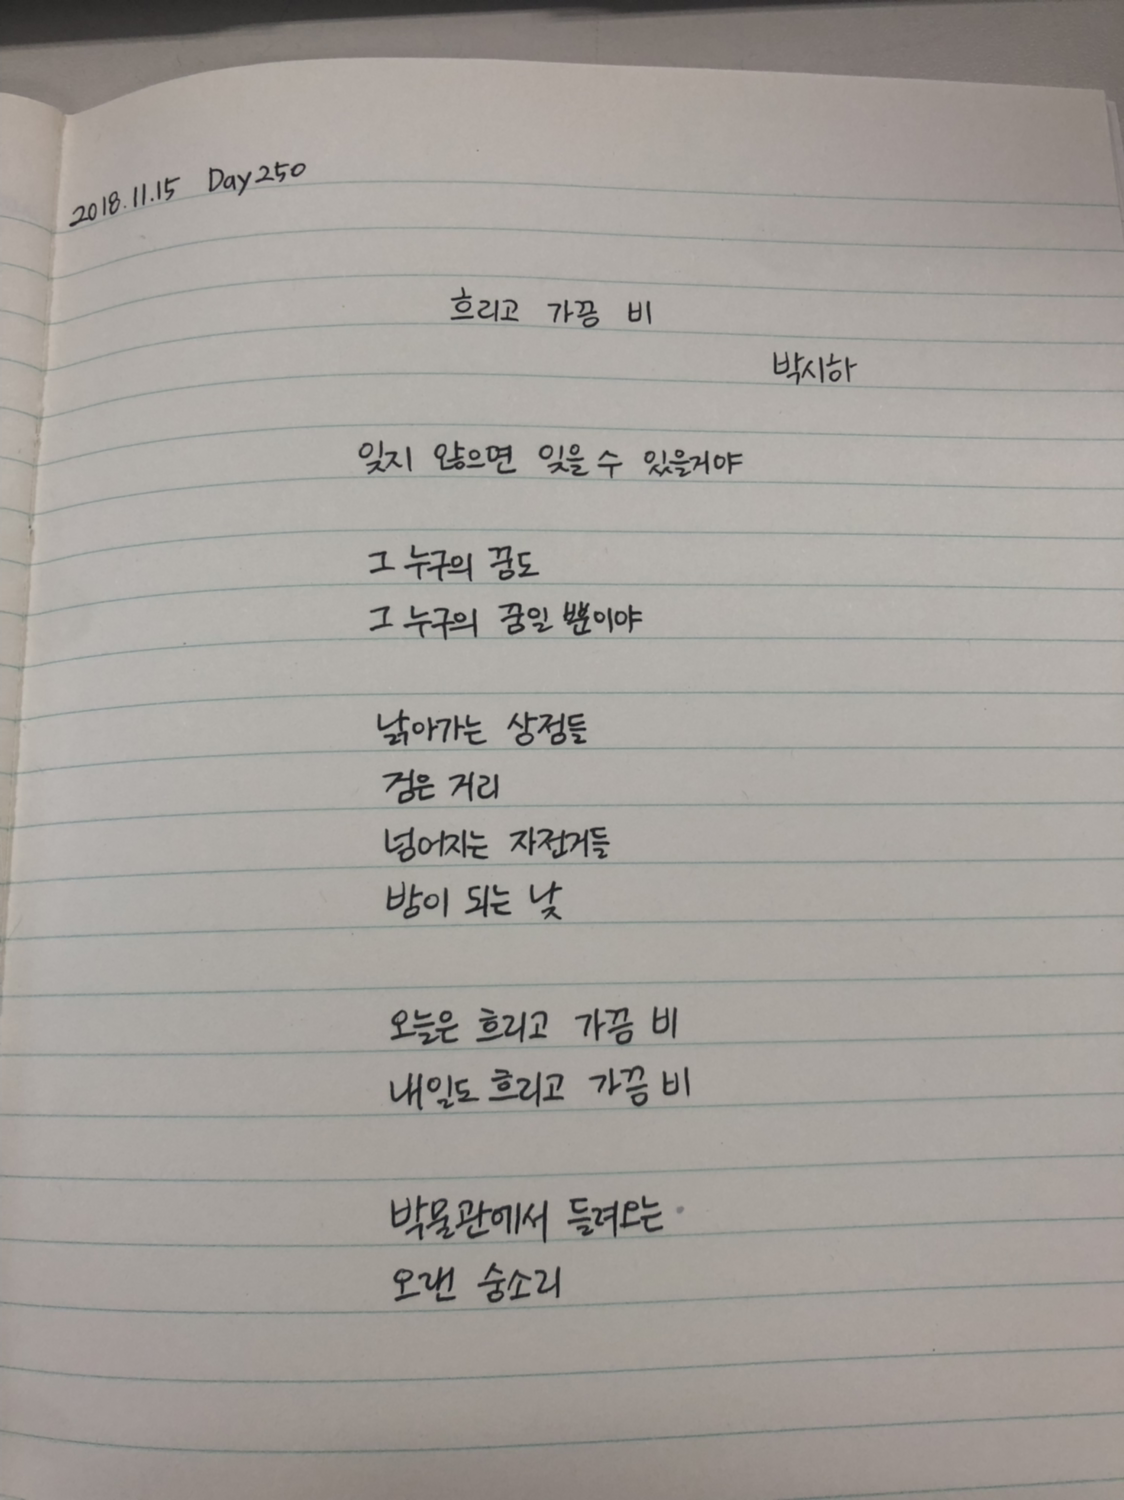 2018.11.15 Day250
흐리고 가끔 비
박시하
잊지 않으면 잊을 수 있을거야
그 누구의 꿈도
그 누구의 꿈일 뿐이야
낡아가는 상점들
검은 거리
넘어지는 자전거들
밤이 되는 낮
오늘은 흐리고 가끔 비
내일도 흐리고 가끔 비
박물관에서 들려오는
오랜 숨소리